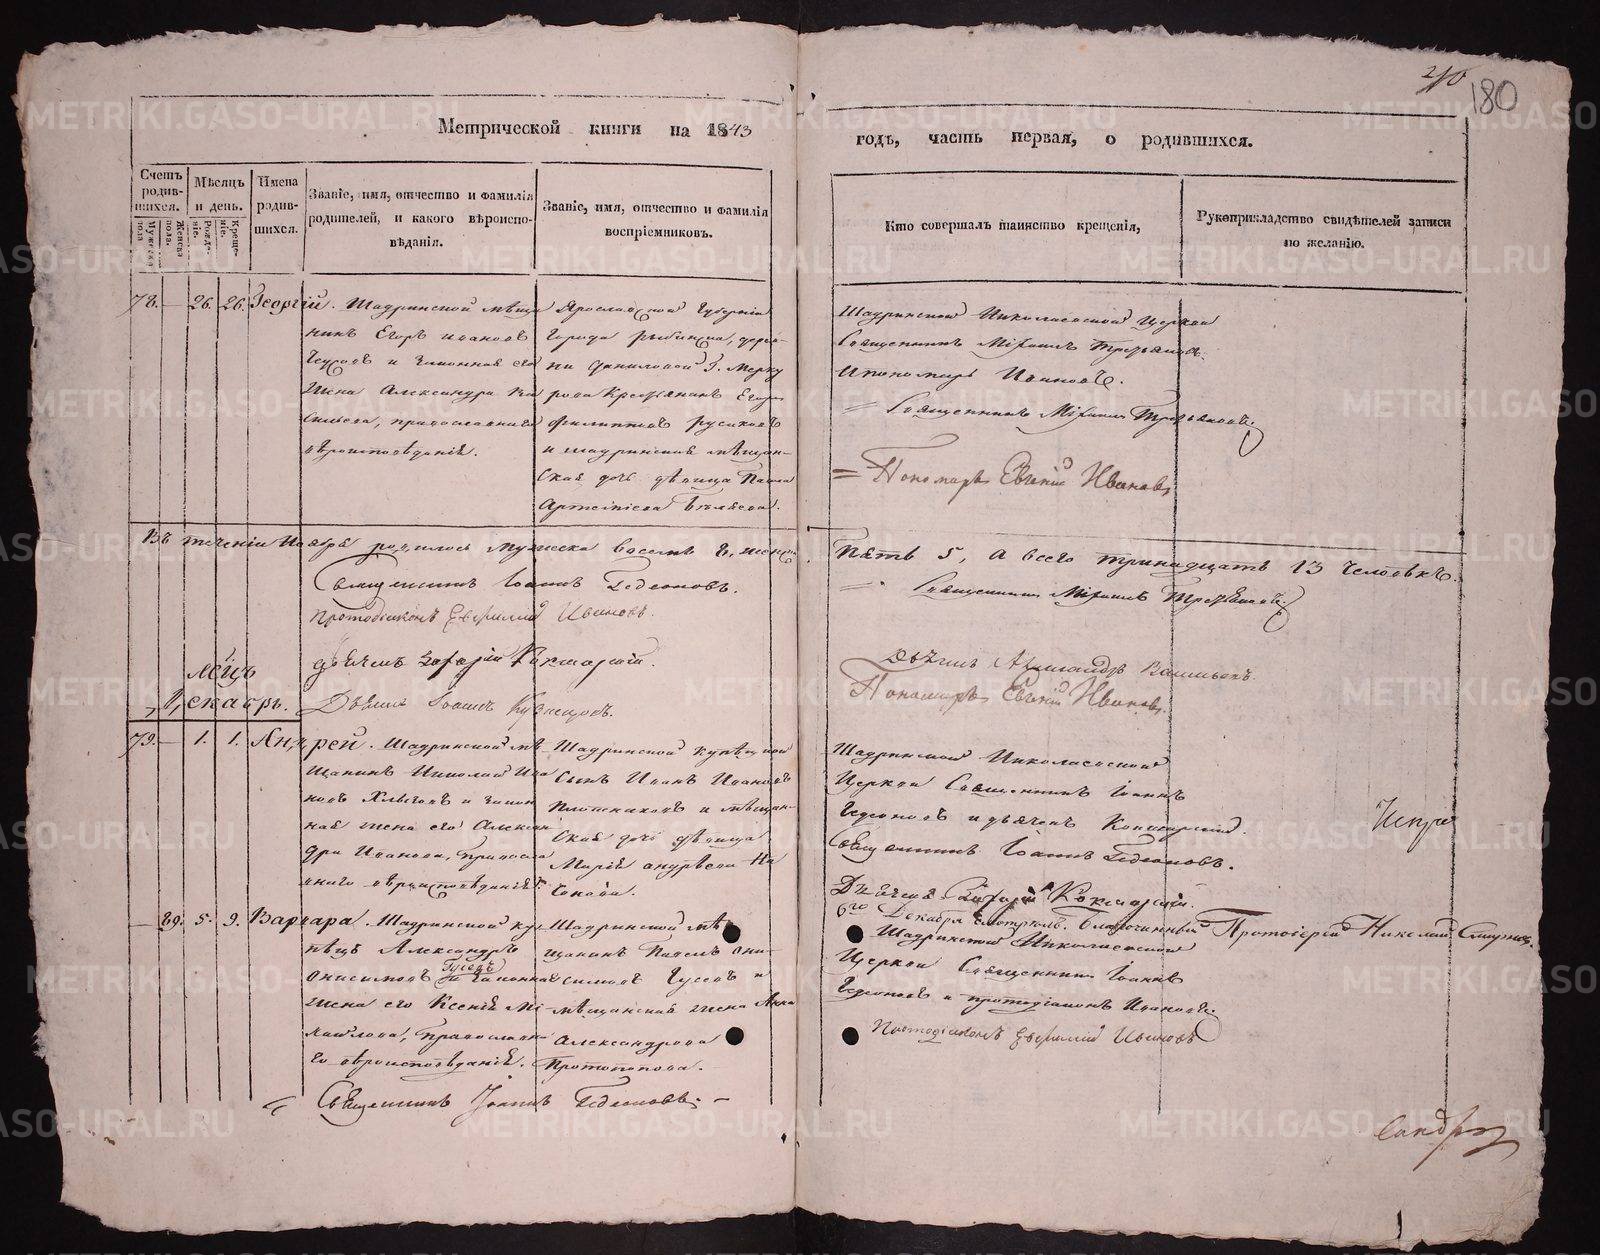 180
Метрической книги на 1843
годъ, часть первая, о родившихся.
Счетъ родив-шихся.
Мужеска пола.
Женска пола.
Мѣсяцъ и день.
Рожде-ніе.
Креще-ніе.
Имена родив-шихся.
Званіе, имя, отчество и фамилія
родителей, и какого вѣроиспо-
вѣданія.
Званіе, имя, отчество и фамилія
воспріемниковъ.
Кто совершалъ таинство крещенія,
Рукоприкладство свидѣтелей записи
по желанію.
78. — 26. 26. Георгій.
Шадринской мѣща
нинъ Егоръ Ивановъ
и законная его
жена Александра Ва
сильева, православнаго
вѣроисповѣданія.
Ярославской Губерніи
города Рыбинска, дерев-
ни Даниловой Г. Мерку
рова Крестьянинъ Егоръ
Филипповъ Русаковъ
и шадринская мѣщан-
ская дочь дѣвица
Артемьева Бѣляева.
Шадринской Николаевской Церкви
Священникъ Михаилъ Третьяковъ.
и пономарь Ивановъ.
Священникъ Михаилъ Третьяковъ.
Пономарь Евгеній Ивановъ
Въ теченіи Ноября родилось мужеска восемь 8, женска
Пять 5, а всего тринадцать 13 человѣкъ.
Священникъ Іоаннъ Гедеоновъ.
Протодіаконъ Ивановъ.
Дьячекъ
Дьячекъ Іоаннъ Кузнецовъ.
Священникъ Михаилъ Третьяковъ.
Дьячекъ Александръ
Пономарь Евгеній Ивановъ.
мѣцъ
Декабрь.
79. — 1. 1. Андрей.
Шадринской мѣ
щанинъ Николай Ива
новъ и закон
ная жена его Алексан
дра Иванова, Правосла
внаго вѣроисповѣданія.
Шадринской купецкой
сынъ Иванъ Ивановъ
Плотниковъ и мѣщан-
ская дочь дѣвица
Марія Андреева
Шадринской Николаевской
Церкви Священникъ Іоаннъ
Гедеоновъ и дьячекъ
Священникъ Іоаннъ Гедеоновъ.
Дьячекъ
6го Декабря смотрѣлъ Благочинный Протоіерей Николай
— 89. 5. 9. Варвара.
Шадринской ку
пецъ Александръ
Онисимовъ Гусевъ и законная
жена его Ксенія Ми
хайлова, Православна
го вѣроисповѣданія.
Шадринской мѣ
щанинъ Павелъ Они
симовъ Гусевъ и
мѣщанская жена Анна
Александрова
Протопопова.
Шадринской Николаевской
Церкви Священникъ Іоаннъ
Гедеоновъ и протодіаконъ Ивановъ.
Протодіаконъ Ивановъ
Священникъ Іоаннъ Гедеоновъ.
METRIKI.GASO-URAL.RU